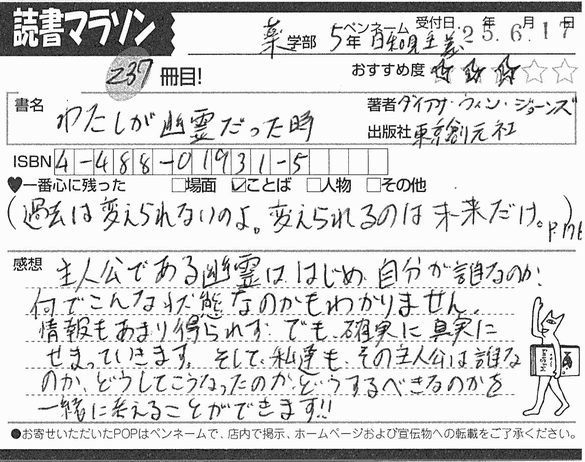 読書マラソン
薬学部 5年 ペンネーム 日和見主義 受付日 25年6月17日
239冊目! おすすめ度 ★★★☆☆
書名 わたしが幽霊だった時
著者 ダイアナ・ウィン・ジョーンズ
出版社 東京創元社
ISBN 4-488-01931-5
♥一番心に残った □場面 ☑ことば □人物 □その他
(過去は変えられないのよ。変えられるのは未来だけ。) P.176
感想 主人公である幽霊は、はじめ、自分が誰なのか、
何でこんな状態なのかもわかりません。
情報もあまり得られず、でも、確実に真実に
せまっていきます。そして、私達も、その主人公は誰な
のか、どうしてこうなったのか、どうするべきなのかを
一緒に考えることができます!!
●お寄せいただいたPOPはペンネームで、店内で掲示、ホームページおよび宣伝物への転載をご了承ください。